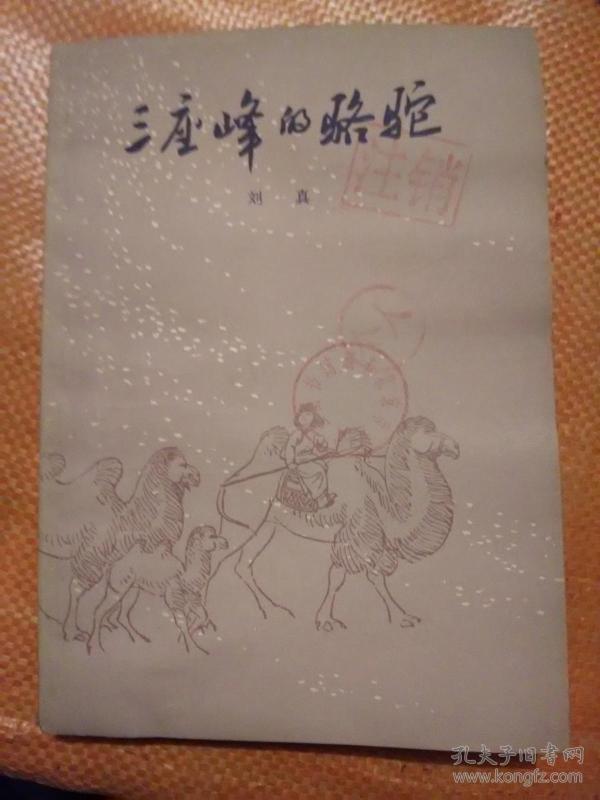 三座峰的骆驼
注销
刘真
孔夫子旧书网
www.kongfz.com